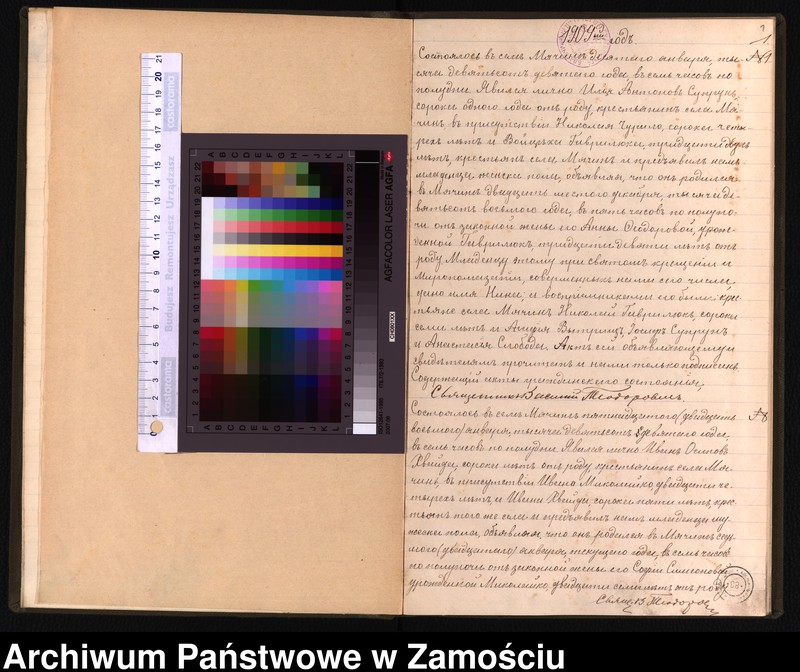 1909 год
1
Состоялось въ селѣ Мячинъ десятаго января, ты- №1
сяча девятьсотъ девятаго года, въ семь часовъ по
полудни. Явился лично Илія Антоновъ Супрунъ,
сорока одного года отъ роду, крестьянинъ села Мя-
чинъ, въ присутствіи Николая Чурыло, сорока четы-
рехъ лѣтъ и Войцѣха Гаврилюка, тридцати двухъ
лѣтъ, крестьянъ села Мячинъ и предъявилъ намъ
младенца женска пола, объявляя, что онъ родился
въ Мячинѣ двадцать шестого декабря, тысяча де-
вятьсотъ восьмого года, въ пять часовъ по полуно-
чи отъ законной жены его Анны Ѳеодоровой, урож-
денной Гаврилюкъ, тридцати девяти лѣтъ отъ
роду. Младенцу этому при святомъ крещеніи и
Миропомазаніи, совершенныхъ нами сего числа,
дано имя Нина, а воспріемниками его были кре-
стьяне села Мячинъ Николай Гаврилюкъ, сорока
семи лѣтъ и Агафія Супрунъ
и Анастасія Слободы. Актъ сей объявляющему и
свидѣтелямъ прочитанъ и нами только подписанъ.
Содержащій акты гражданскаго состоянія,
Священникъ Василій Теодоровичъ
Состоялось въ селѣ Мячинъ пятнадцатого (двадцать №
восьмого) января, тысяча девятьсотъ девятаго года,
въ семь часовъ по полудни. Явился лично Иванъ Осиповъ
Хвейда, сорока лѣтъ отъ роду, крестьянинъ села Мя-
чинъ, въ присутствіи Ивана Миколейко, двадцати че-
тырехъ лѣтъ и Ивана Хвейды, сорока пяти лѣтъ, кре-
стьянъ того же села и предъявилъ намъ младенца му-
жескаго пола, объявляя, что онъ родился въ Мячинѣ седь-
мого (двадцатаго) января, текущаго года, въ семь часовъ
по полуночи отъ законной жены его Софіи Симеоновой,
урожденной Миколейко, двадцати семи лѣтъ отъ роду
Свящ. В. Теодорович
castorama Budujesz Remontujesz Urządzasz castorama
0 1 2 3 4 5 6 7 8 9 10 11 12 13 14 15 16 17 18 19 20 21
A B C D E F G H I J K L
1 2 3 4 5 6 7 8 9 10 11 12 13 14 15 16 17 18 19 20 21 22
AGFACOLOR LASER AGFA
Archiwum Państwowe w Zamościu